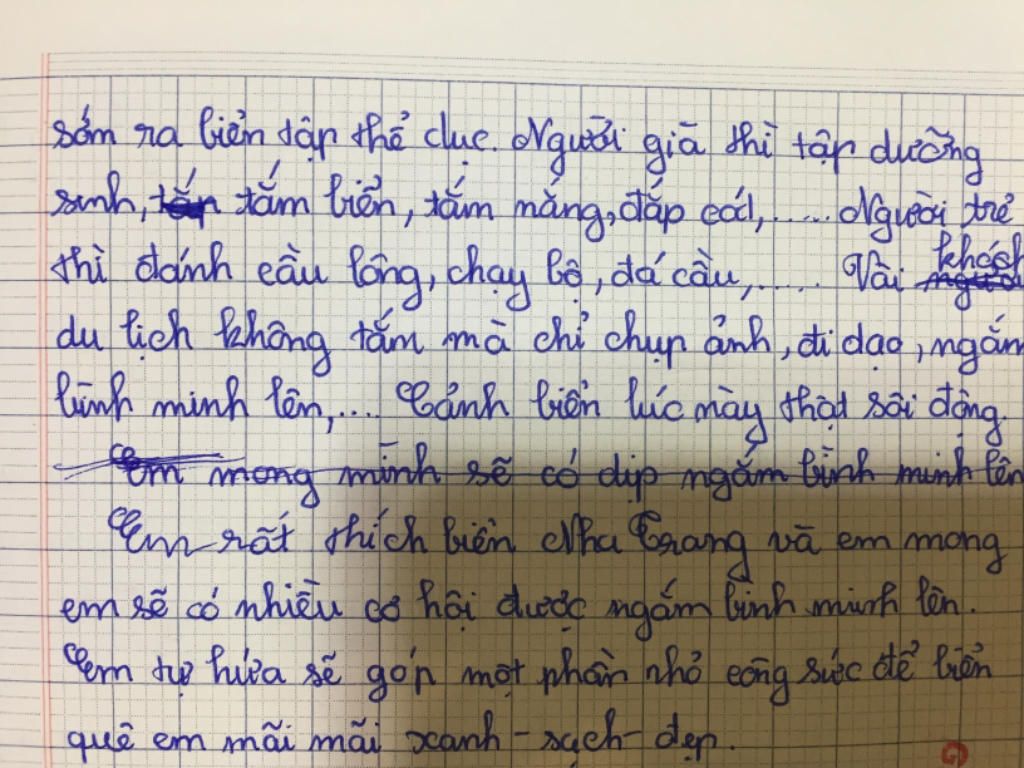 sớm ra biển tập thể dục. Người già thì tập dưỡng
sinh, tắm biển, tắm nắng, đắp cát,..... Người trẻ
thì đánh cầu lông, chạy bộ, đá cầu,..... Vài khách
du lịch không tắm mà chỉ chụp ảnh, đi dạo, ngắm
bình minh lên,.... Cảnh biển lúc này thật sôi động.
Em mong mình sẽ có dịp ngắm bình minh lên
Em rất thích biển Nha Trang và em mong
em sẽ có nhiều cơ hội được ngắm bình minh lên.
Em tự hứa sẽ góp một phần nhỏ công sức để biển
quê em mãi mãi xanh - sạch - đẹp.